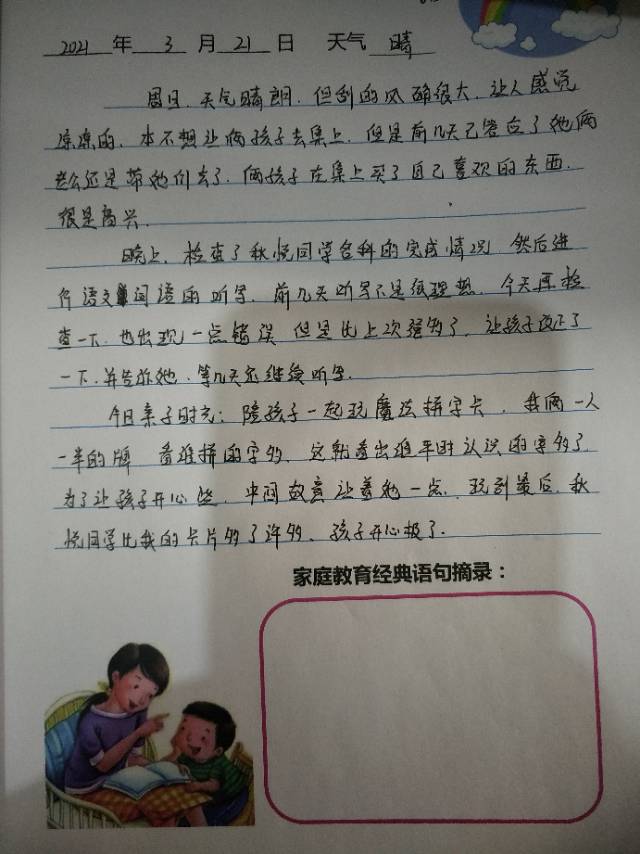 2021 年 3 月 21 日 天气 晴
周日，天气晴朗，但刮的风确很大，让人感觉
凉凉的，本不想让俩孩子去集上，但是前几天已答应了他俩
怎么还是带他们去了，俩孩子在集上买了自己喜欢的东西，
很是高兴。
晚上，检查了秋悦同学各科的完成情况，然后进
行语文词语的听写，前几天听写不是很理想，今天再检
查一下，也出现一点错误，但是比上次强多了，让孩子改正了
一下，并告诉她，等几天还继续听写。
今日亲子时光：陪孩子一起玩魔法拼字卡，我俩一人
一半的牌，看谁拼的字多，这就看出谁平时认识的字多了，
为了让孩子开心些，中间故意让着她一点，玩到最后，秋
悦同学比我的卡片多了许多，孩子开心极了。
家庭教育经典语句摘录：